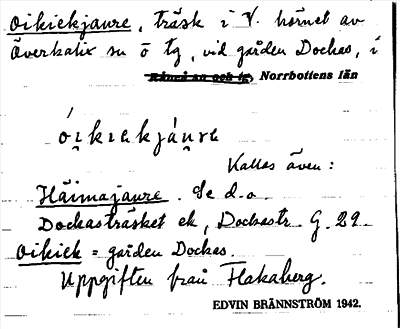 Oikiekjaure, träsk i V. hörnet av
Överkalix sn o tg, vid gården Dockas, i
Råneå sn och tg, Norrbottens län
óikiekjáurɛ
Kallas även:
Häimajaure. Se d.o.
Dockasträsket ek, Dockastr. G. 29.
Oikiek = gården Dockas.
Uppgiften från Flakaberg.
EDVIN BRÄNNSTRÖM 1942.